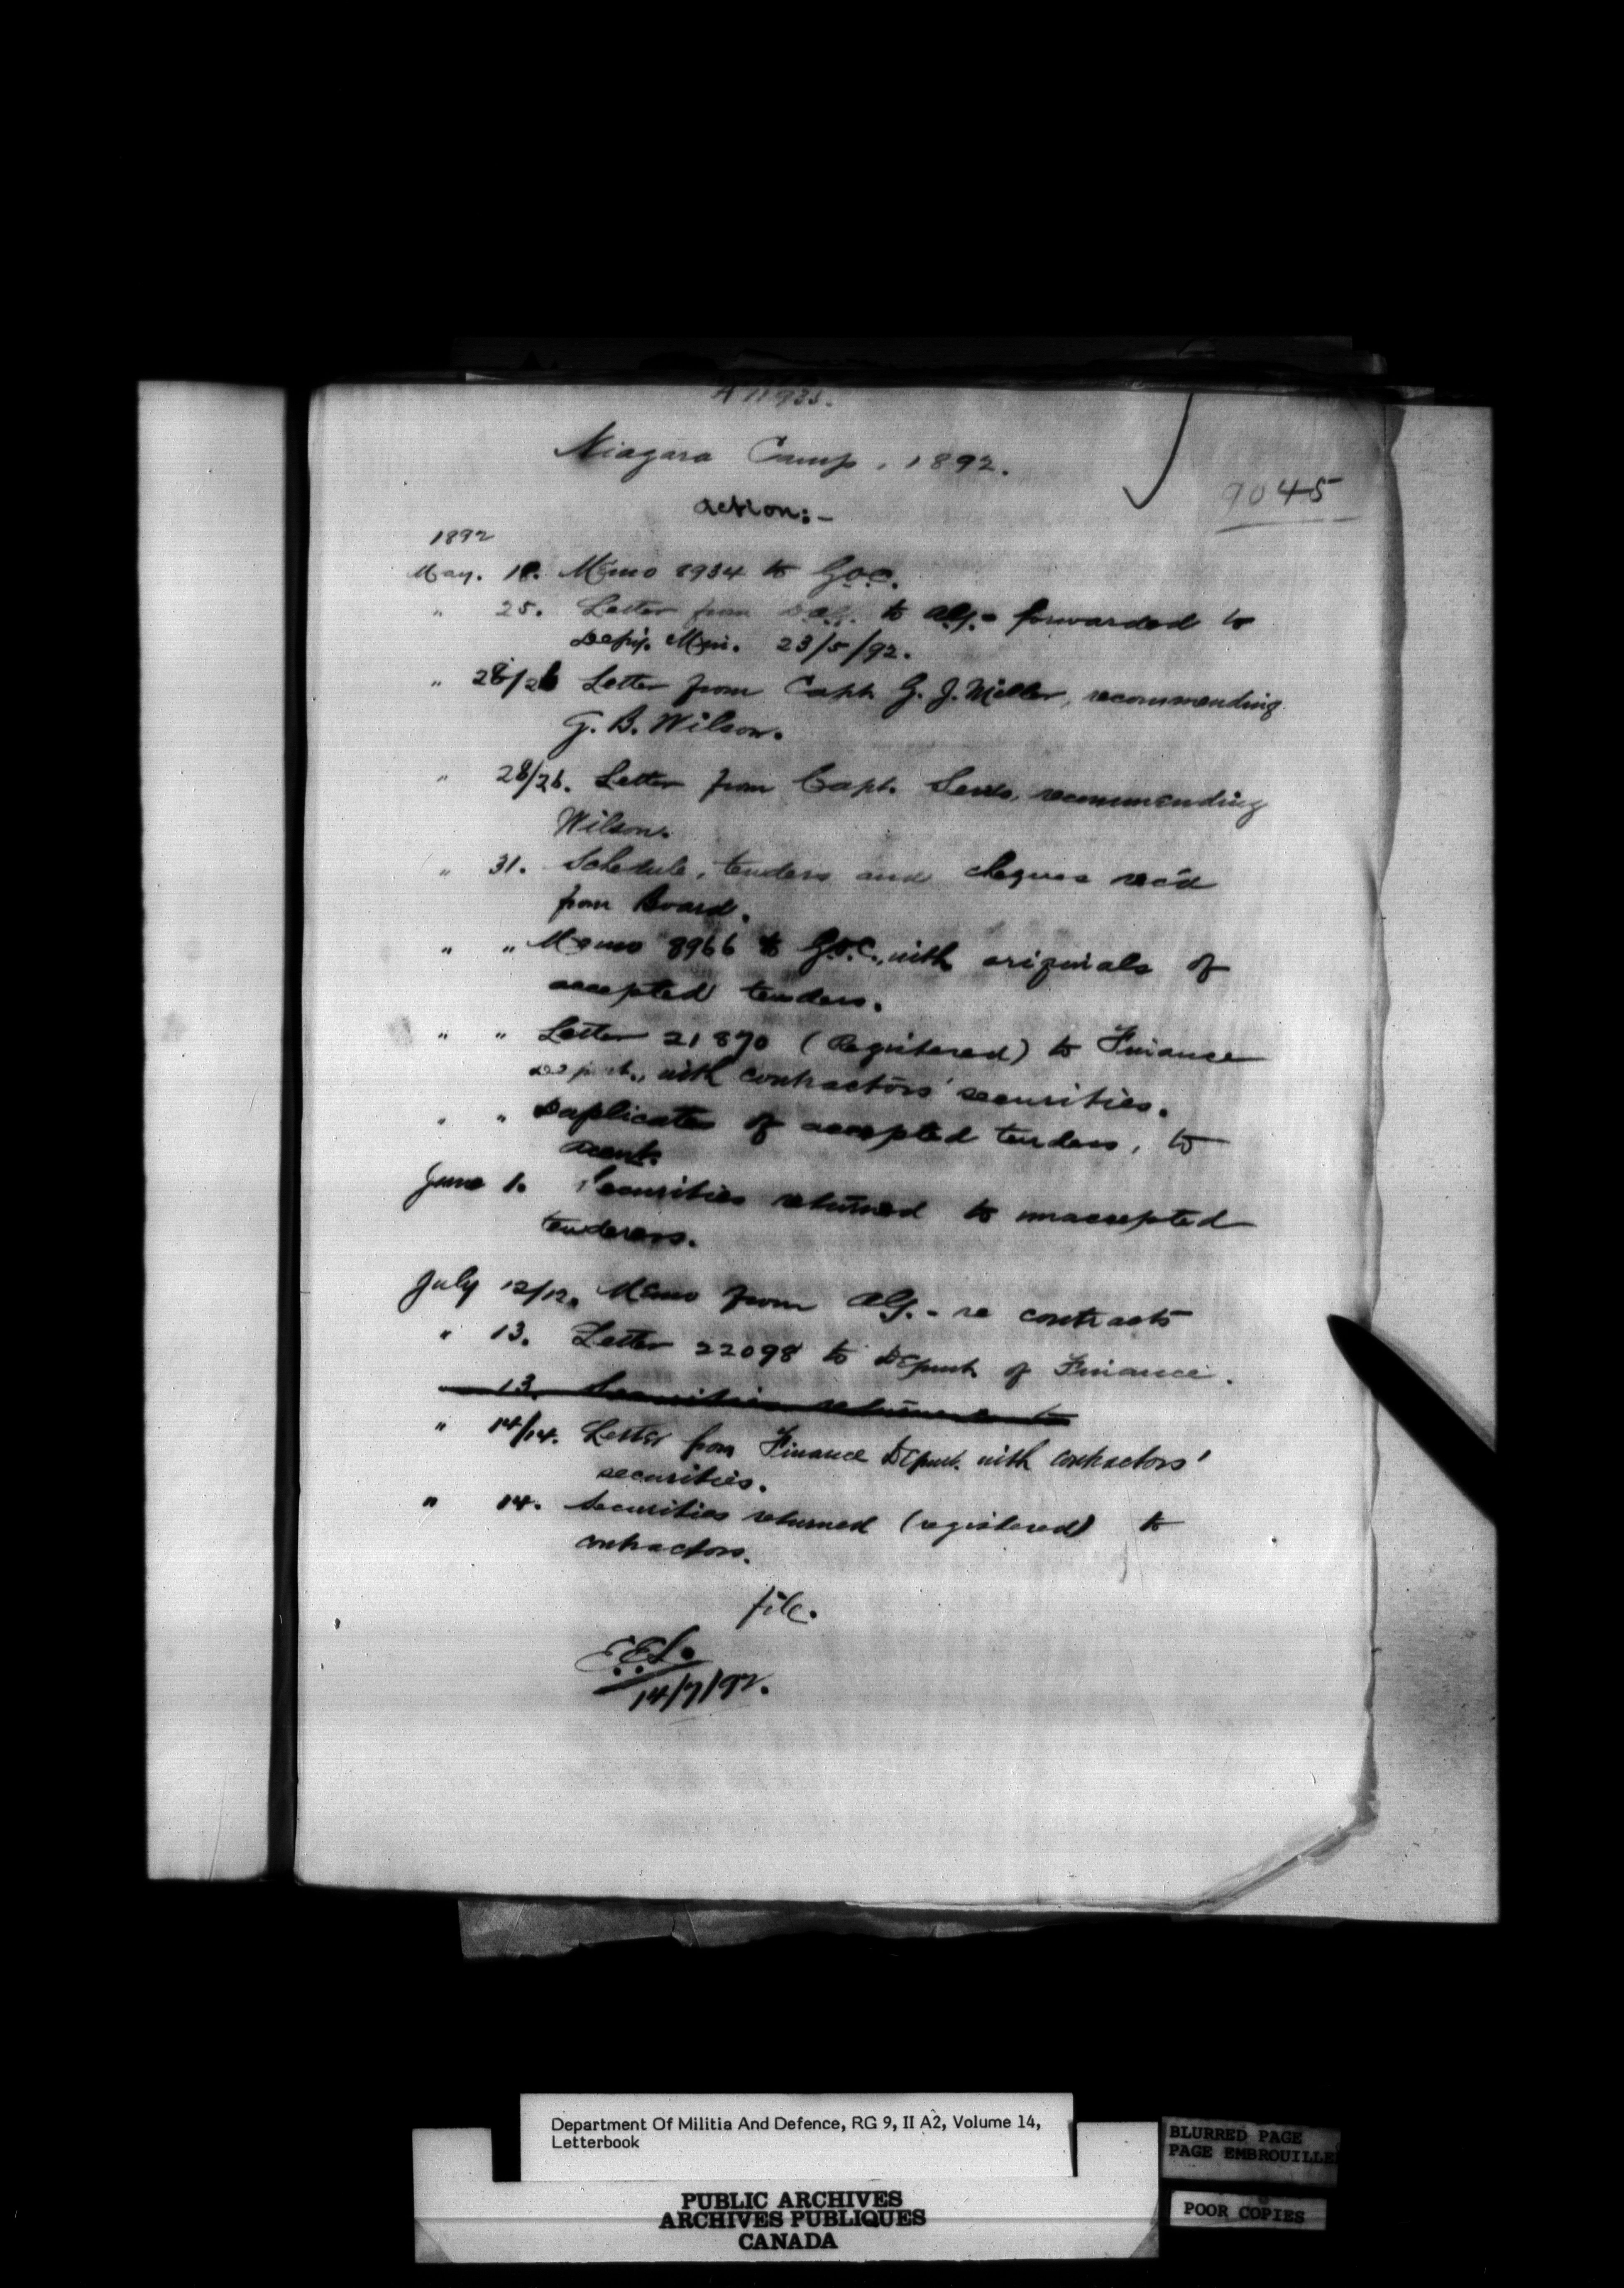 A 11935.
Niagara Camp, 1892.
9045
Action:-
1892
May. 18. Memo 8934 to G.O.C.
" 25. Letter from D.A.G. to A.G. - forwarded to
Depy. Min. 23/5/92.
" 28/26 Letter from Capt. G. J. Miller, recommending
G. B. Wilson.
" 28/26. Letter from Capt. Servos, recommending
Wilson.
" 31. Schedule, tenders and cheques rec'd
from Board.
" " Memo 8966 to G.O.C., with originals of
accepted tenders.
" " Letter 21870 (Registered) to Finance
Depart., with contractors' securities.
" " Duplicates of accepted tenders, to
Acent.
June 1. Securities returned to unaccepted
tenderers.
July 12/12. Memo from A.G. - re contracts
" 13. Letter 22098 to Depart. of Finance.
13. Securities returned to
" 14/14. Letter from Finance Depart. with contractors'
securities.
" 14. Securities returned (registered) to
contractors.
file.
E.E.L.
14/7/92.
Department Of Militia And Defence, RG 9, II A2, Volume 14,
Letterbook
PUBLIC ARCHIVES
ARCHIVES PUBLIQUES
CANADA
BLURRED PAGE
PAGE EMBROUILLE
POOR COPIES